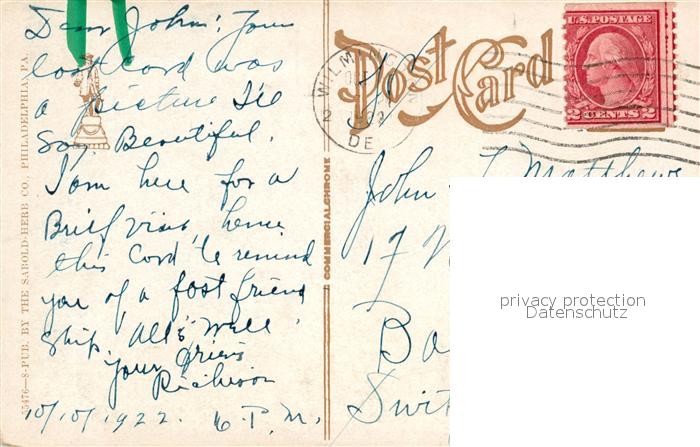 Dear John: Your
last Card was
a picture I'll
say. Beautiful.
I am here for a
Brief visit, hence
this Card to remind
you of a fast friend
ship. All's Well.
Your friend
10/10/1922. 6 P.M.
55476—S-PUB. BY THE SABOLD-HERB CO., PHILADELPHIA, PA.
COMMERCIALCHROME
Post Card
WILM
DE
U.S. POSTAGE
2 CENTS 2
John L Matthews
17
Ba
Swit
privacy protection
Datenschutz